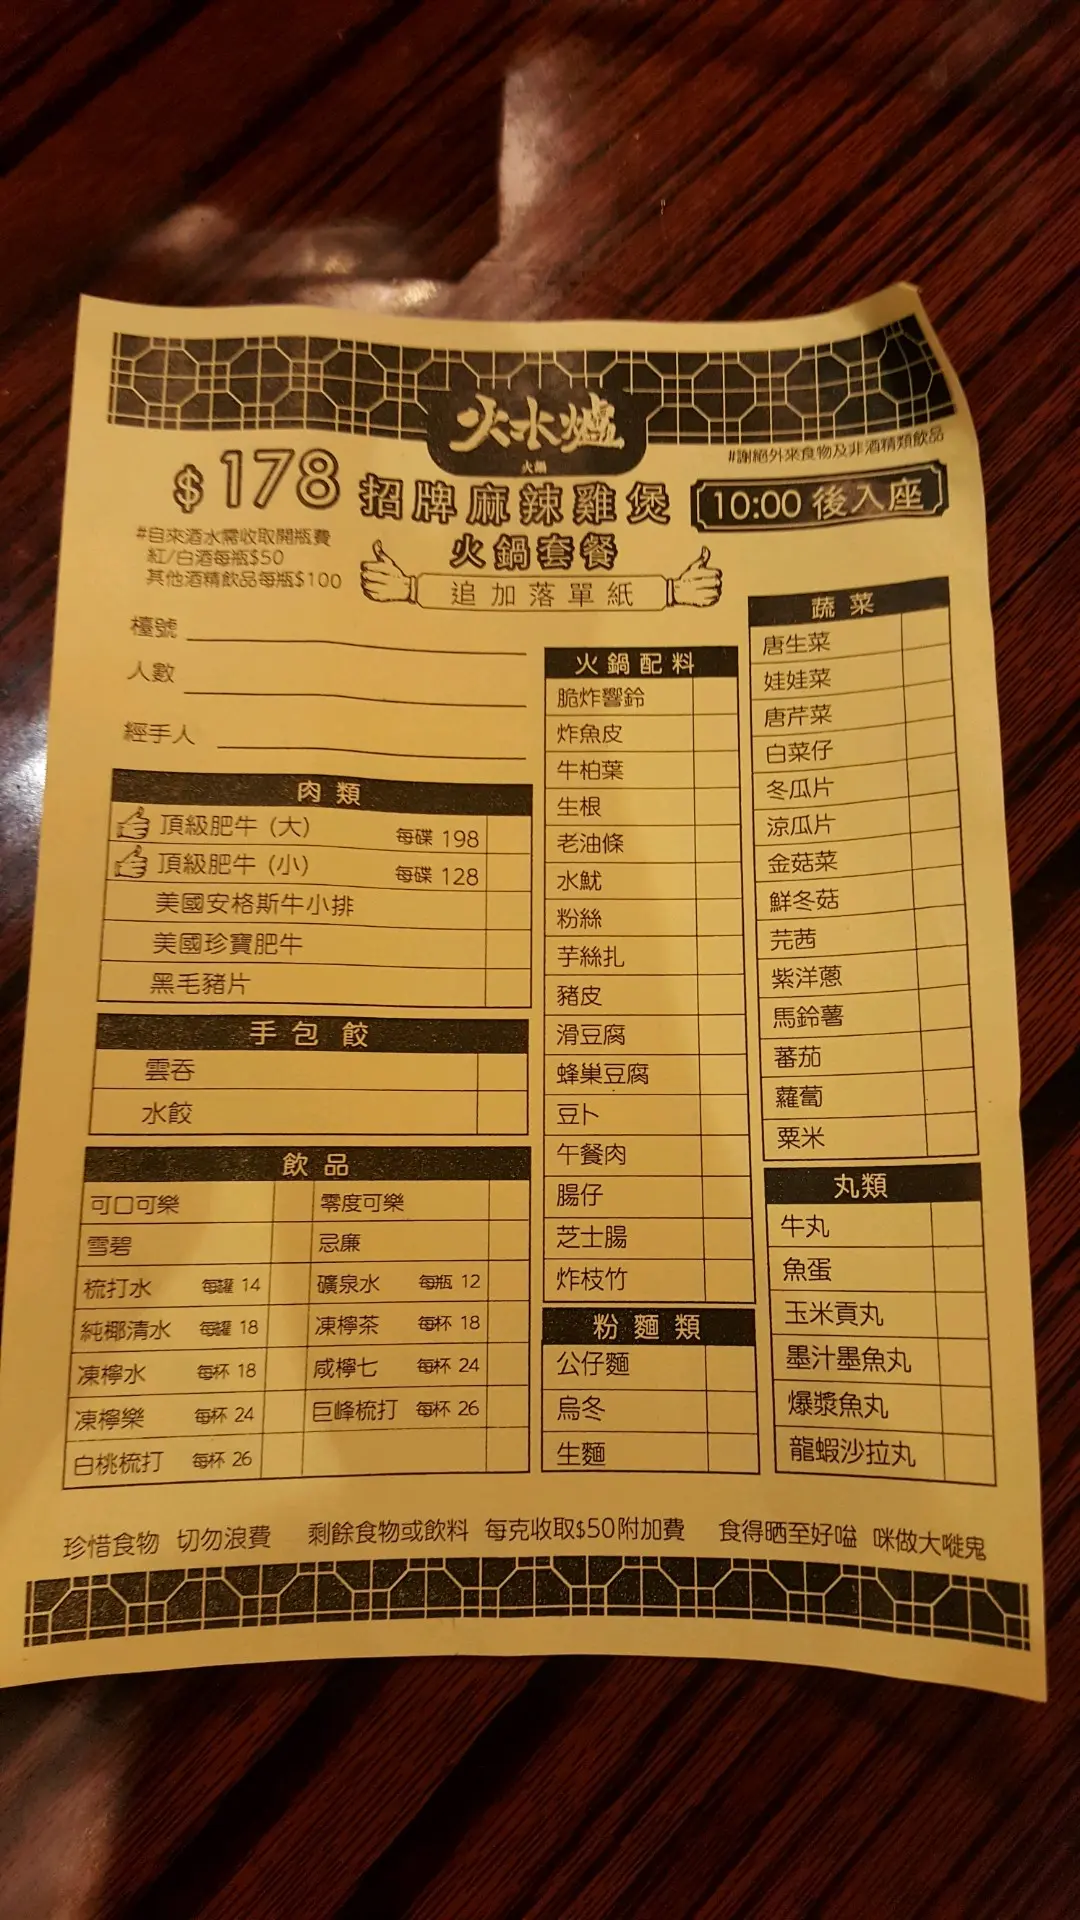 火水爐
火鍋
#謝絕外來食物及非酒精類飲品
$178 招牌麻辣雞煲 10:00 後入座
火鍋套餐
追加落單紙
#自來酒水需收取開瓶費
紅/白酒每瓶$50
其他酒精飲品每瓶$100
檯號
人數
經手人
肉類
頂級肥牛 (大) 每碟 198
頂級肥牛 (小) 每碟 128
美國安格斯牛小排
美國珍寶肥牛
黑毛豬片
手包餃
雲吞
水餃
飲品
可口可樂 零度可樂
雪碧 忌廉
梳打水 每罐 14 礦泉水 每瓶 12
純椰清水 每罐 18 凍檸茶 每杯 18
凍檸水 每杯 18 咸檸七 每杯 24
凍檸樂 每杯 24 巨峰梳打 每杯 26
白桃梳打 每杯 26
火鍋配料
脆炸響鈴
炸魚皮
牛柏葉
生根
老油條
水魷
粉絲
芋絲扎
豬皮
滑豆腐
蜂巢豆腐
豆卜
午餐肉
腸仔
芝士腸
炸枝竹
粉麵類
公仔麵
烏冬
生麵
蔬菜
唐生菜
娃娃菜
唐芹菜
白菜仔
冬瓜片
涼瓜片
金菇菜
鮮冬菇
芫茜
紫洋蔥
馬鈴薯
蕃茄
蘿蔔
粟米
丸類
牛丸
魚蛋
玉米貢丸
墨汁墨魚丸
爆漿魚丸
龍蝦沙拉丸
珍惜食物 切勿浪費 剩餘食物或飲料 每克收取$50附加費 食得晒至好嗌 咪做大嘥鬼